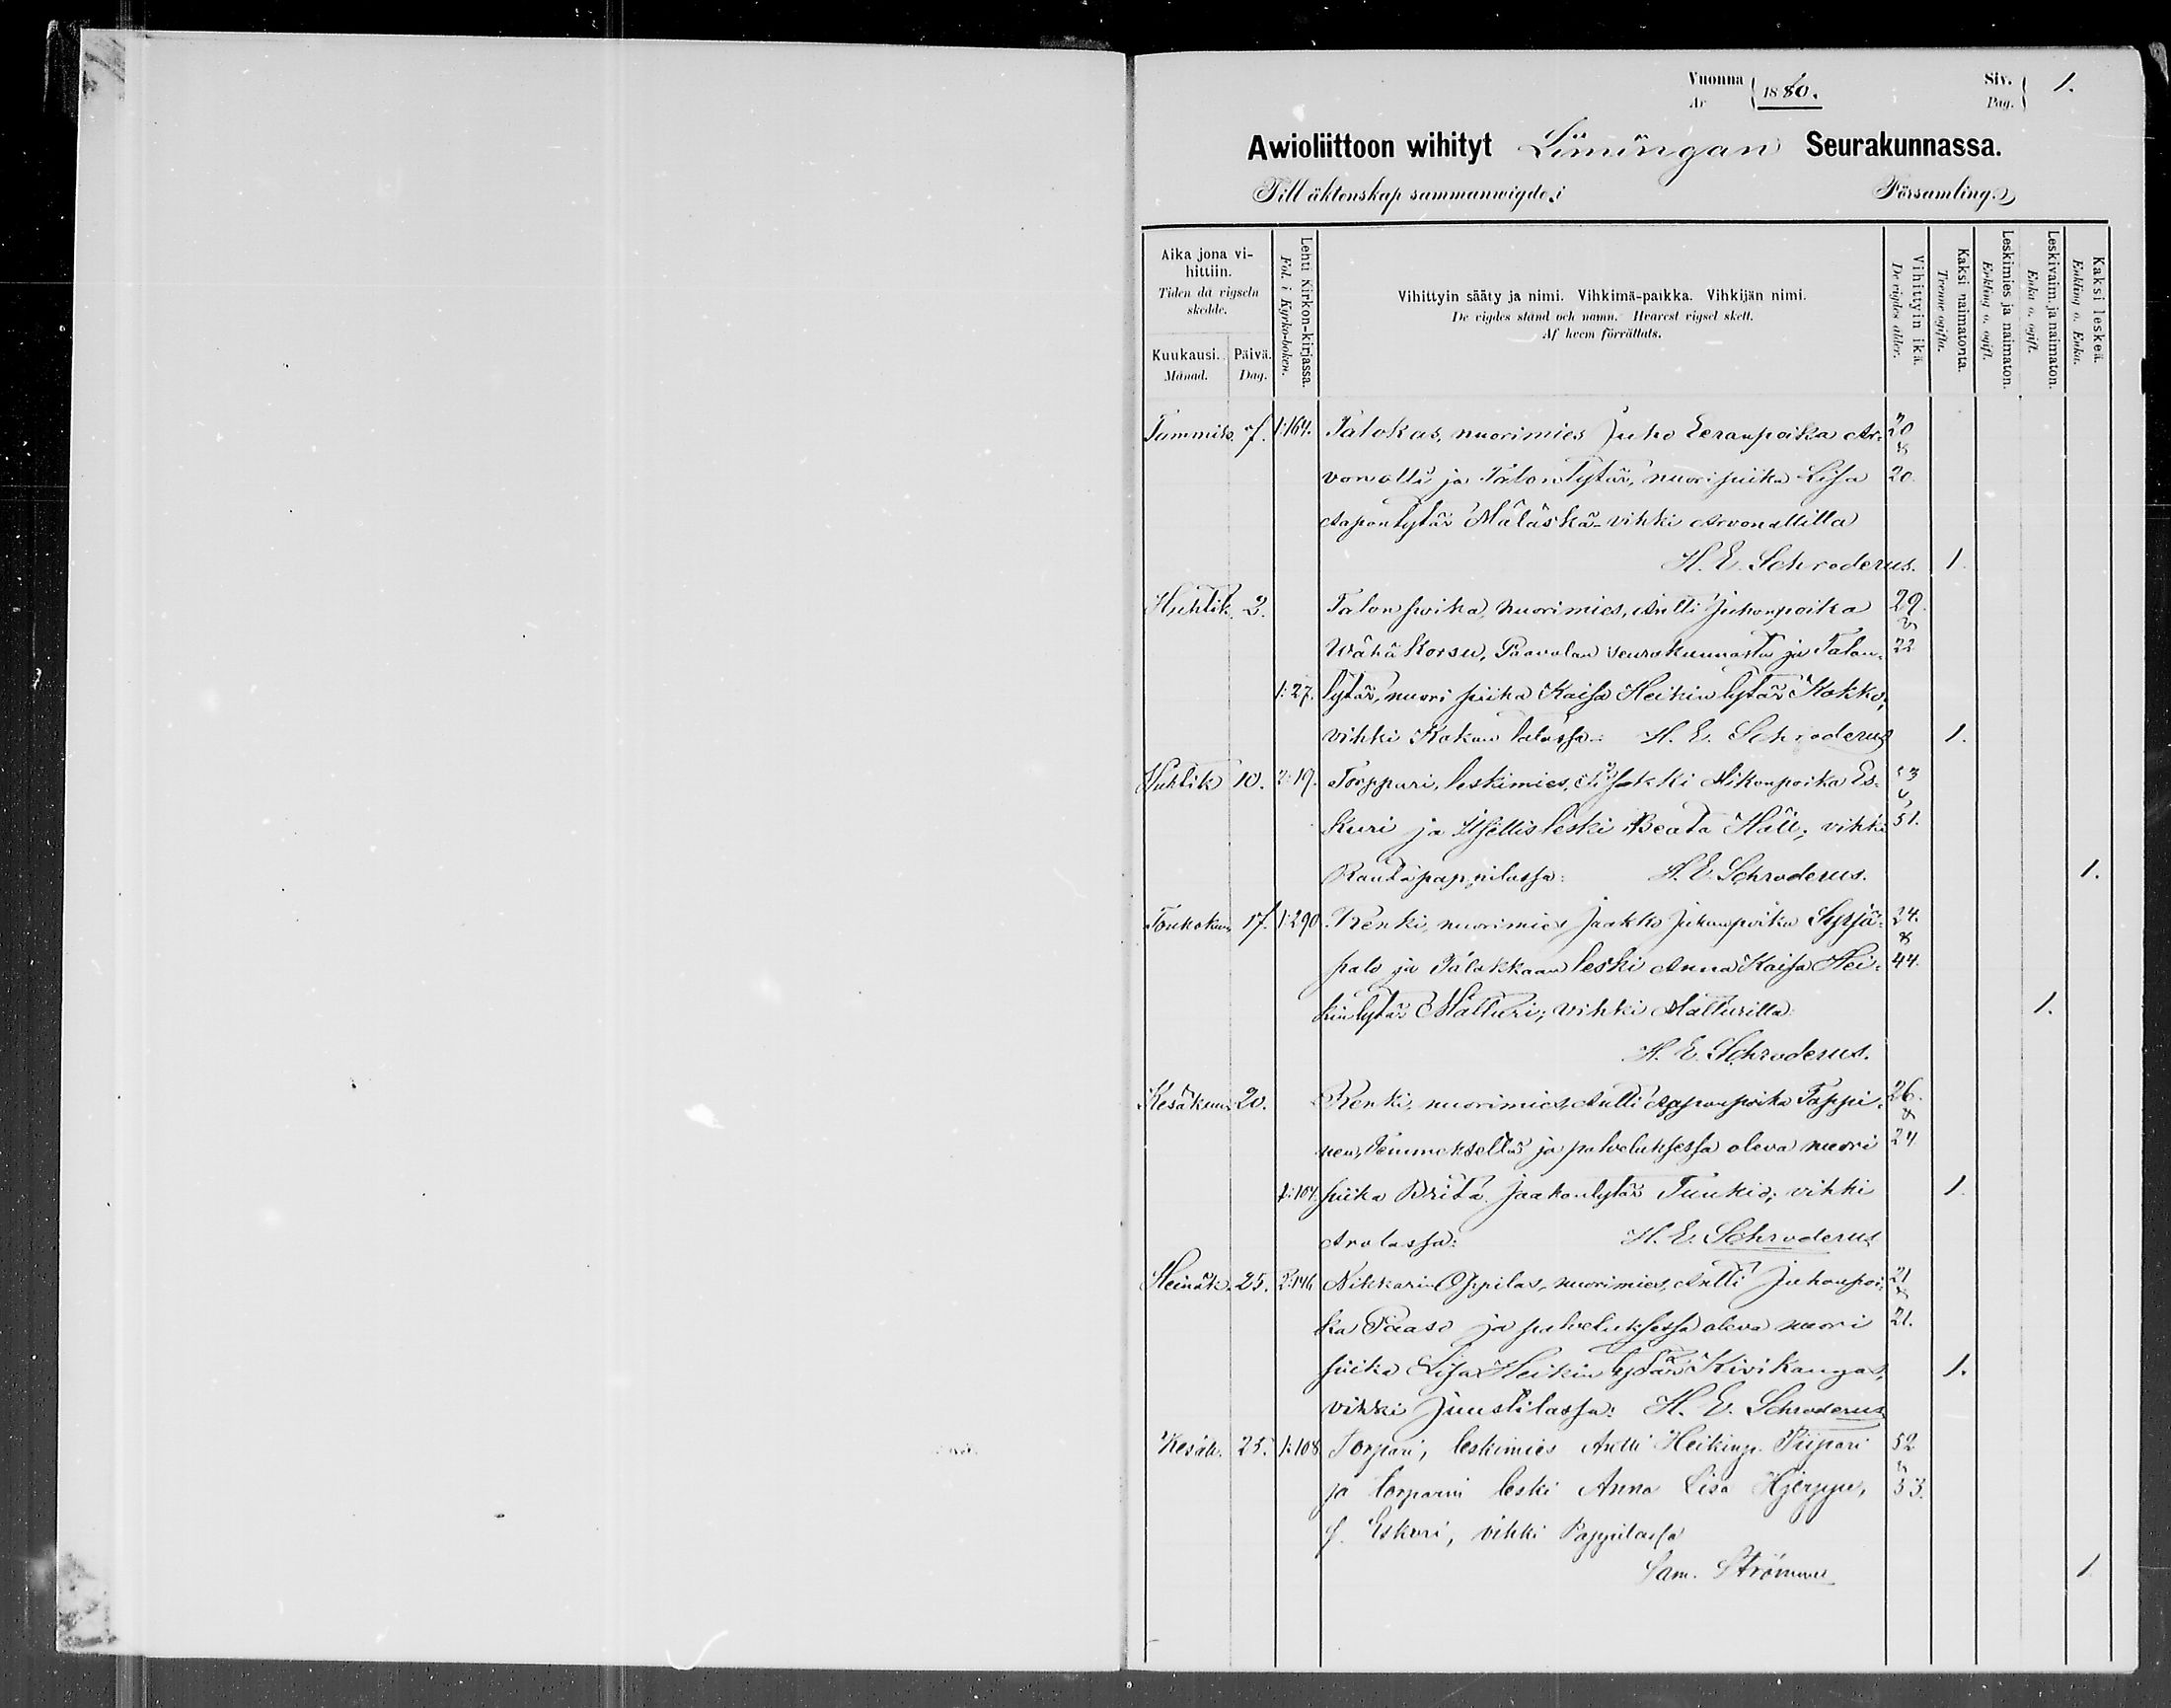 Vuonna 1880. Siv. 1.
År Pag.
Awioliittoon wihityt Limingan Seurakunnassa.
Till äktenskap sammanwigde i Församling.
Aika jona vihittiin.
Tiden då vigseln skedde.
Kuukausi. Månad.
Päivä. Dag.
Lehti Kirkon-kirjassa.
Fol. i Kyrko-boken.
Vihittyin sääty ja nimi. Vihkimä-paikka. Vihkijän nimi.
De vigdes stånd och namn. Hvarest vigsel skett.
Af hvem förrättats.
Vihittyin ikä.
De vigdes ålder.
Kaksi naimatonta.
Tvenne ogifta.
Leskimies ja naimaton.
Enkling o. ogift.
Leskivaim. ja naimaton.
Enka o. ogift.
Kaksi leskeä.
Enkling o. Enka.
Tammik. 7. 1:164. Talokas, nuorimies Juho Eeranpoika Ar- 20
vonalli ja Talontytär, nuori piika Lisa 20.
Aapontytär Määläskä - vihki Arvonallilla
H. E. Schroderus. 1.
Huhtik. 2. Talonpoika, nuorimies, Antti Juhonpoika 29.
Wähä Korsu, Paavolan seurakunnasta ja Talon- 22
1:27. tytär, nuori piika Kaisa Heikintytär Kokko;
vihki Kokon talossa: H. E. Schroderus 1.
Huhtik 10. 2:19. Torppari, leskimies, Iisakki Mikonpoika Es-
kuri ja leski Beata Häll; vihki 51.
Rantapappilassa: H. E. Schroderus. 1.
Toukokuu 17. 1:290 Renki, nuorimies Jaakko Juhonpoika Syrjä- 24.
palo ja Talokkaan leski Anna Kaisa Hei- 44.
kintytär Mätturi; vihki Mätturilla: 1.
H. E. Schroderus.
Kesäkuu 20. Renki, nuorimies, Antti Aaponpoika Tappi- 26.
nen, Temmekseltä ja palveluksessa oleva nuori 24
1:104. piika Brita Jaakontytär Tuukio; vihki 1.
Arolassa: H. E. Schroderus
Heinäk. 25. 2:146 Nikkarin Oppilas, nuorimies, Antti Juhonpoi- 21
ka Paaso ja palveluksessa oleva nuori 21.
piika Lisa Heikintytär Kivikangas, 1.
vihki Juustilassa: H. E. Schroderus
Kesäk. 25. 1:108 Torpari, leskimies Antti Heikinp. Piipari 52
ja torparin leski Anna Lisa Hjerppe, 53.
f. Eskuri, vihki Pappilassa
Sam. Strömmer 1